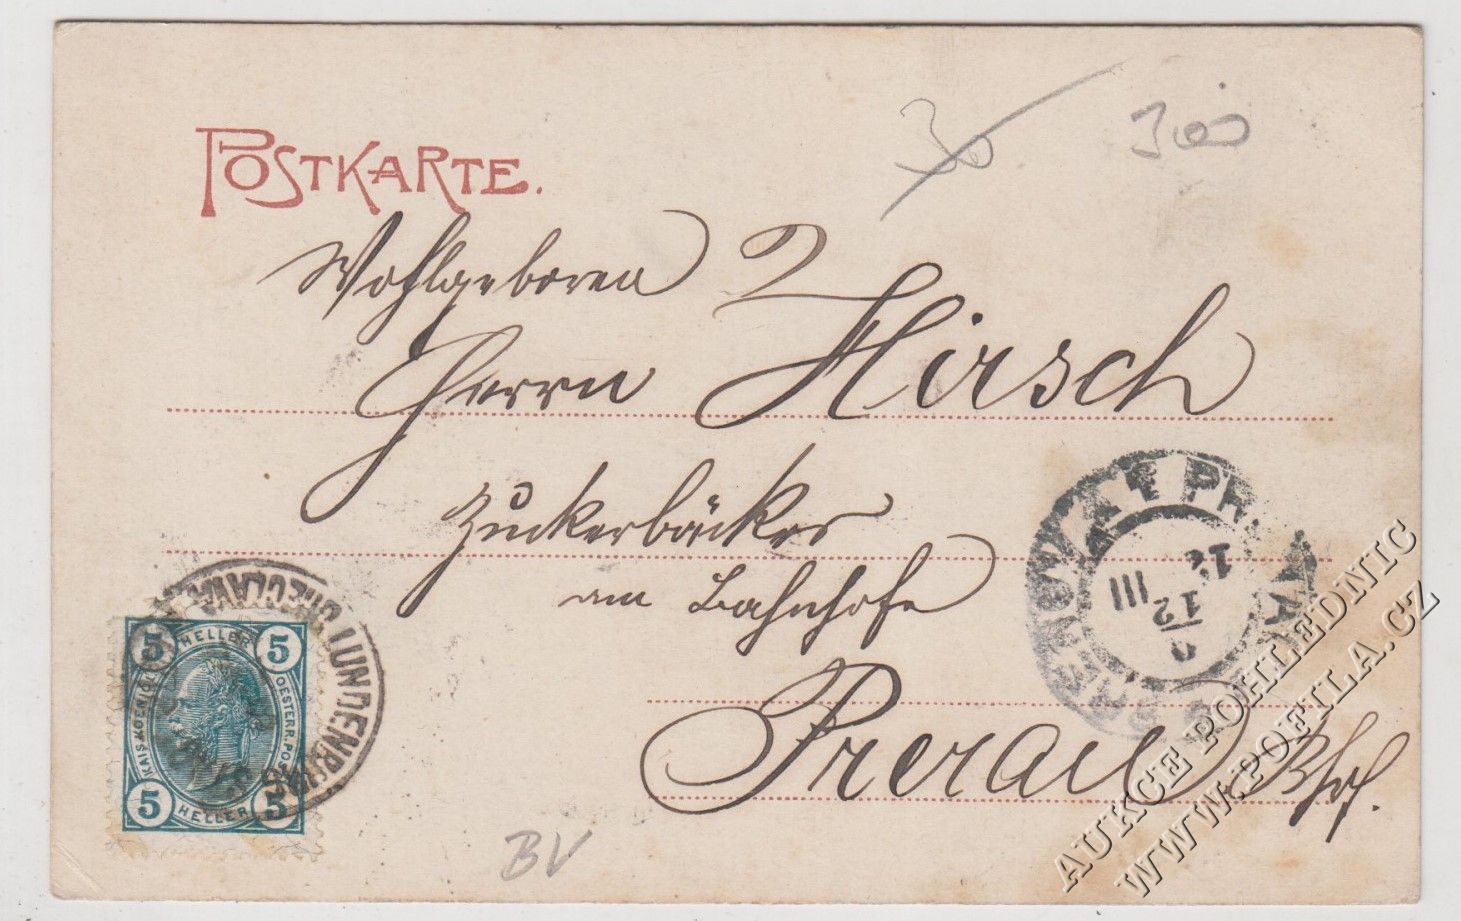 POSTKARTE.
30
300
Wohlgeboren
Herrn Hirsch
Zuckerbäcker
am Bahnhofe
Prerau Bhf.
LUNDENBURG
5 HELLER 5
KAIS. KOENIGL.
OESTERR. POST
5 HELLER 5
12
9
12
III
BV
AUKCE POHLEDNIC
WWW.POFILA.CZ